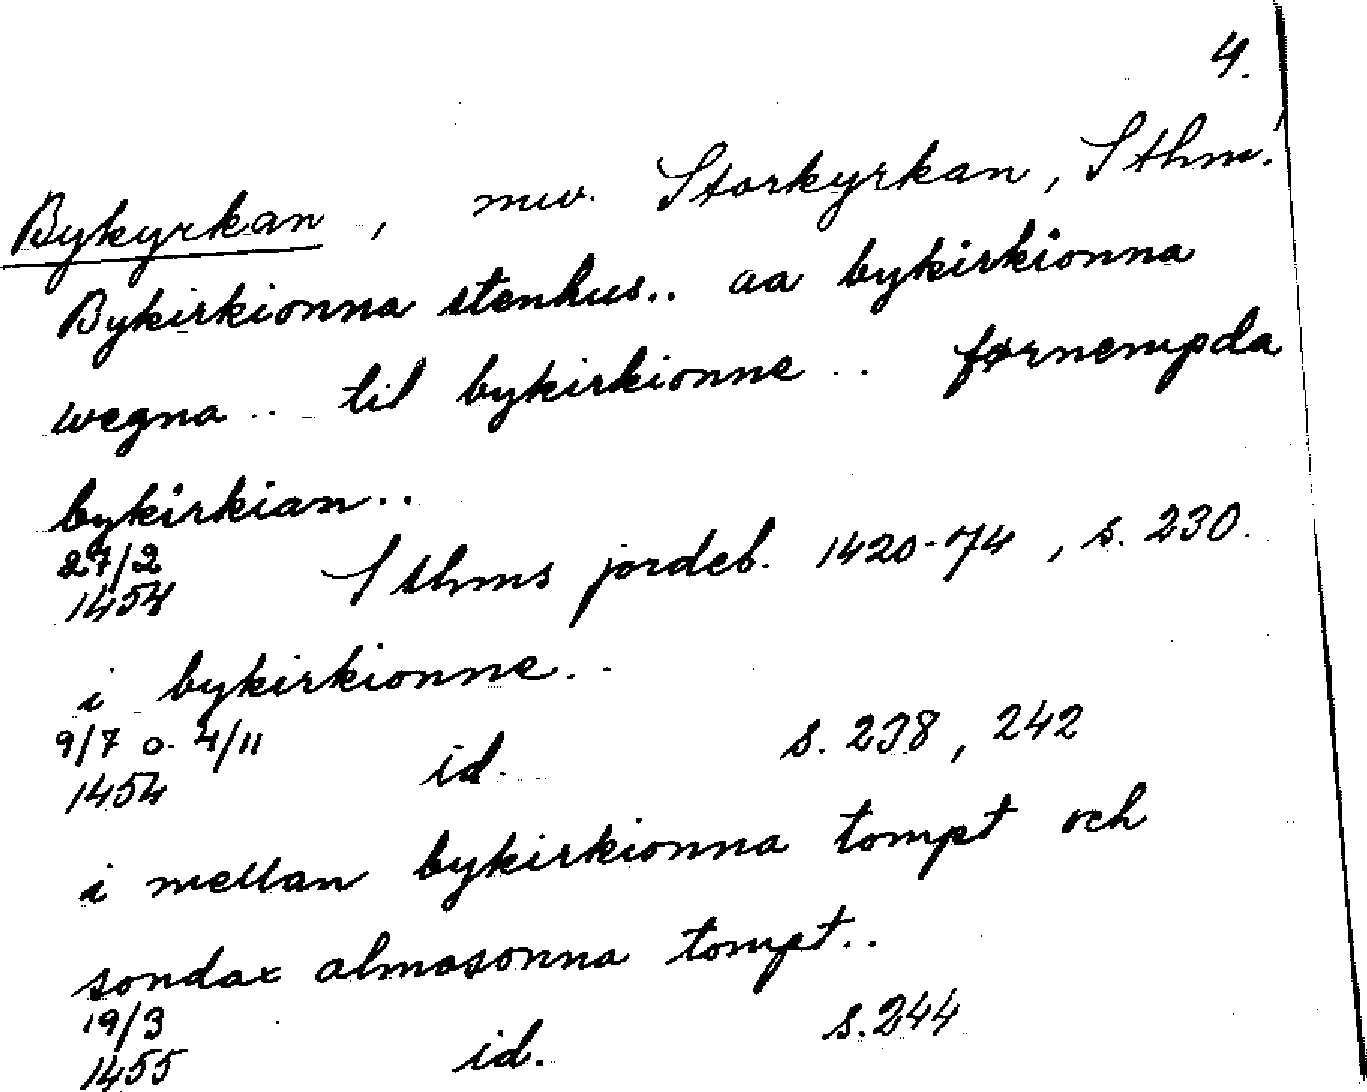 4.
Bykyrkan, nuv. Storkyrkan, Sthm.
Bykirkionna stenhus.. aa bykirkionna
wegna .. til bykirkionne .. førnempda
bykirkian..
27/2
1454 Sthms jordeb. 1420-74, s. 230.
i bykirkionne..
9/7 o. 4/11
1454 id. s. 238, 242
i mellan bykirkionna tompt och
sondax almosonna tompt..
19/3
1455 id. s. 244